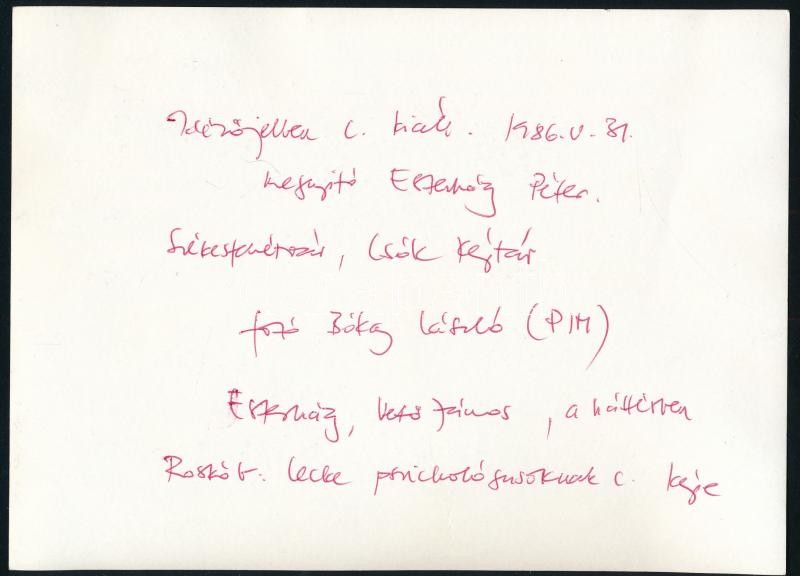 Idézőjelben c. kiáll. 1986.V.31.
megnyitó Eszterházy Péter.
Székesfehérvár, Csók Képtár
fotó Bókay László (PIM)
Eszterházy, Vető János, a háttérben
Roskó G. Lecke pszichológusoknak c. képe